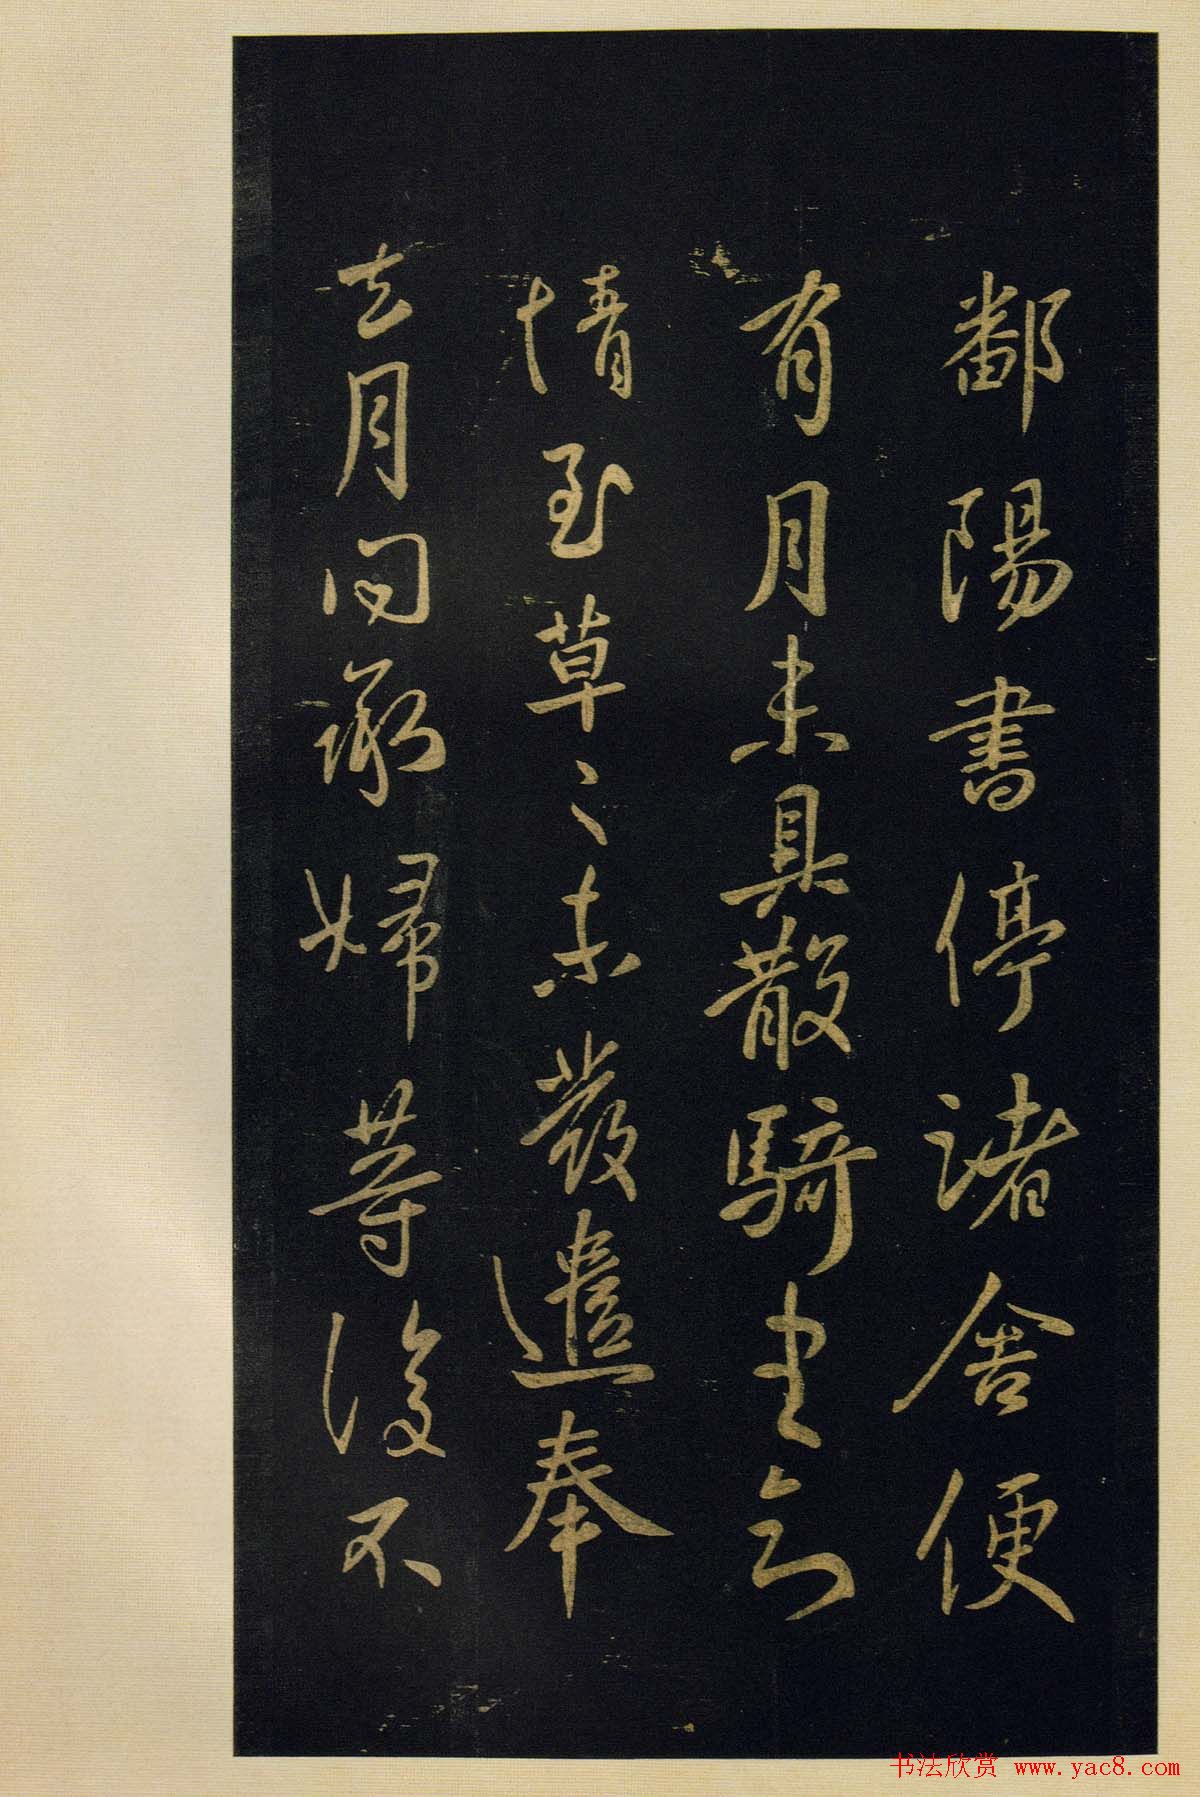 鄱陽書停諸舍便
有月未具散騎書云
情至草〻未發遣奉
去月問承婦等復不
书法欣赏 www.yac8.com